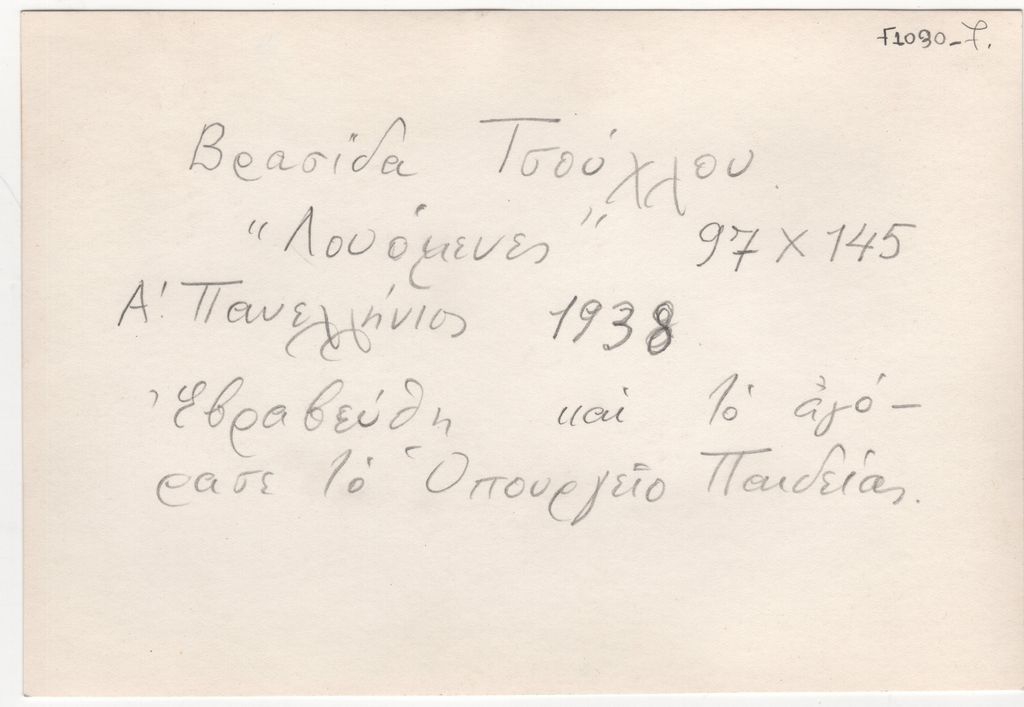 F1090-7.
Βρασίδα Τσούχλου.
"Λουόμενες" 97 X 145
Α! Πανελλήνιος 1938
Ἐβραβεύθη καὶ τὸ ἀγό-
ρασε τὸ Ὑπουργεῖο Παιδείας.